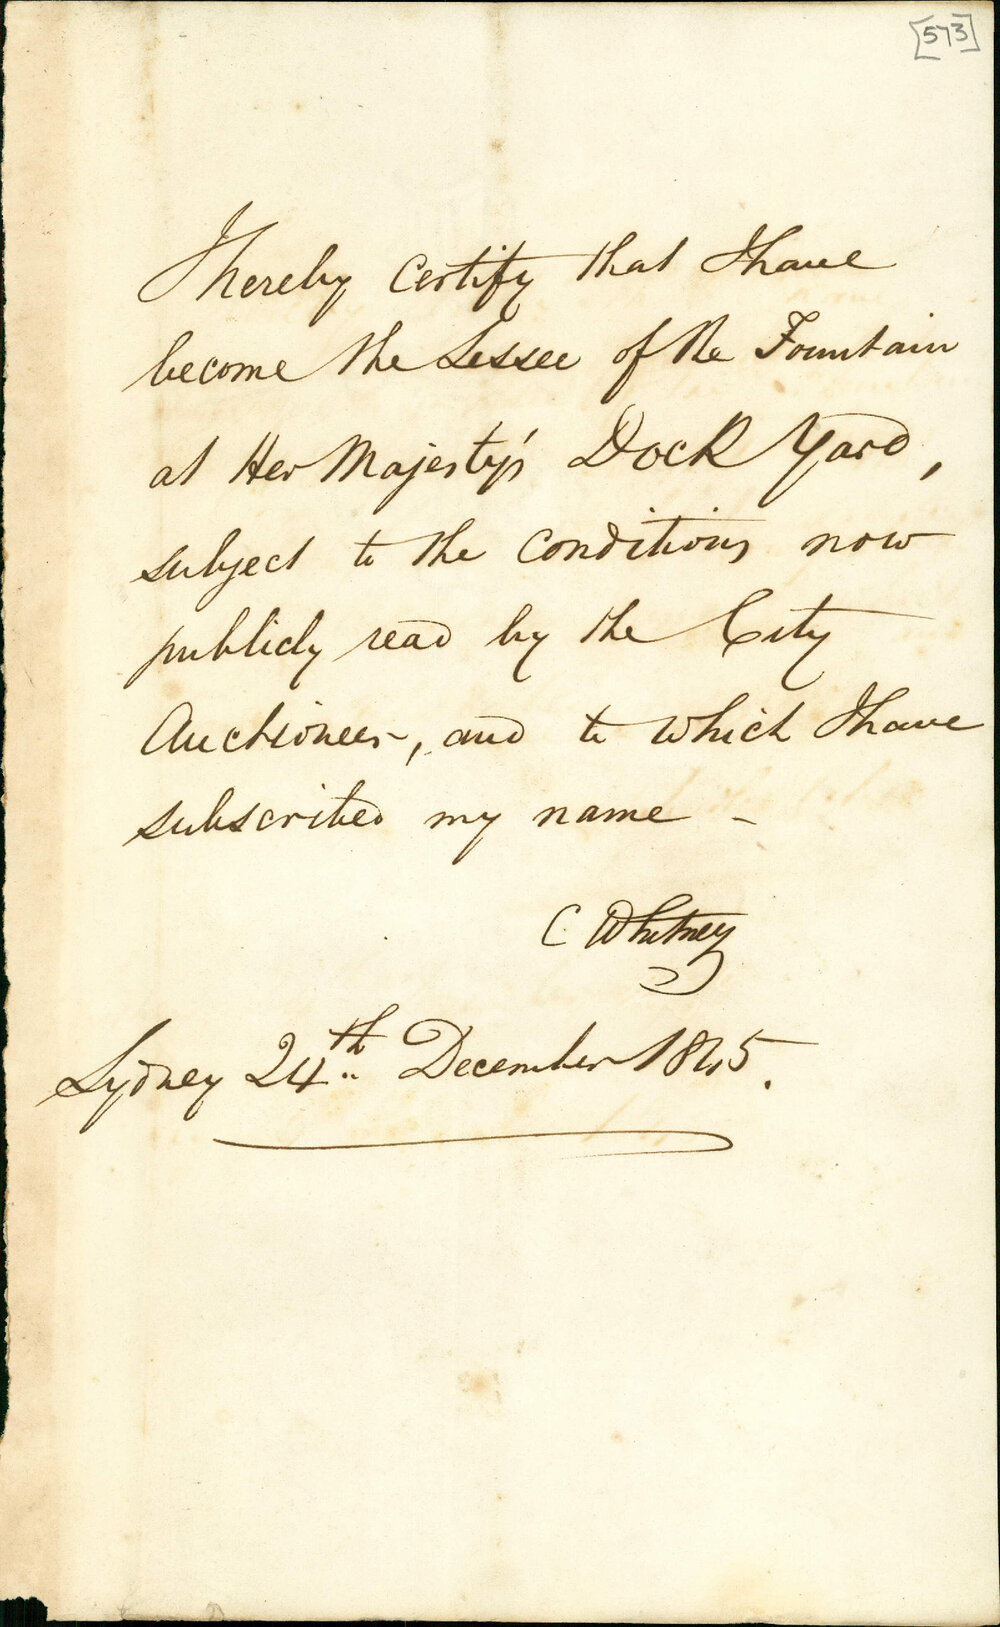 [573]
I hereby certify that I have
become the Lessee of the Fountain
at Her Majesty's Dock Yard,
subject to the conditions now
publicly read by the City
Auctioneer, and to which I have
subscribed my name -
C Whitney
Sydney 24th December 1845.